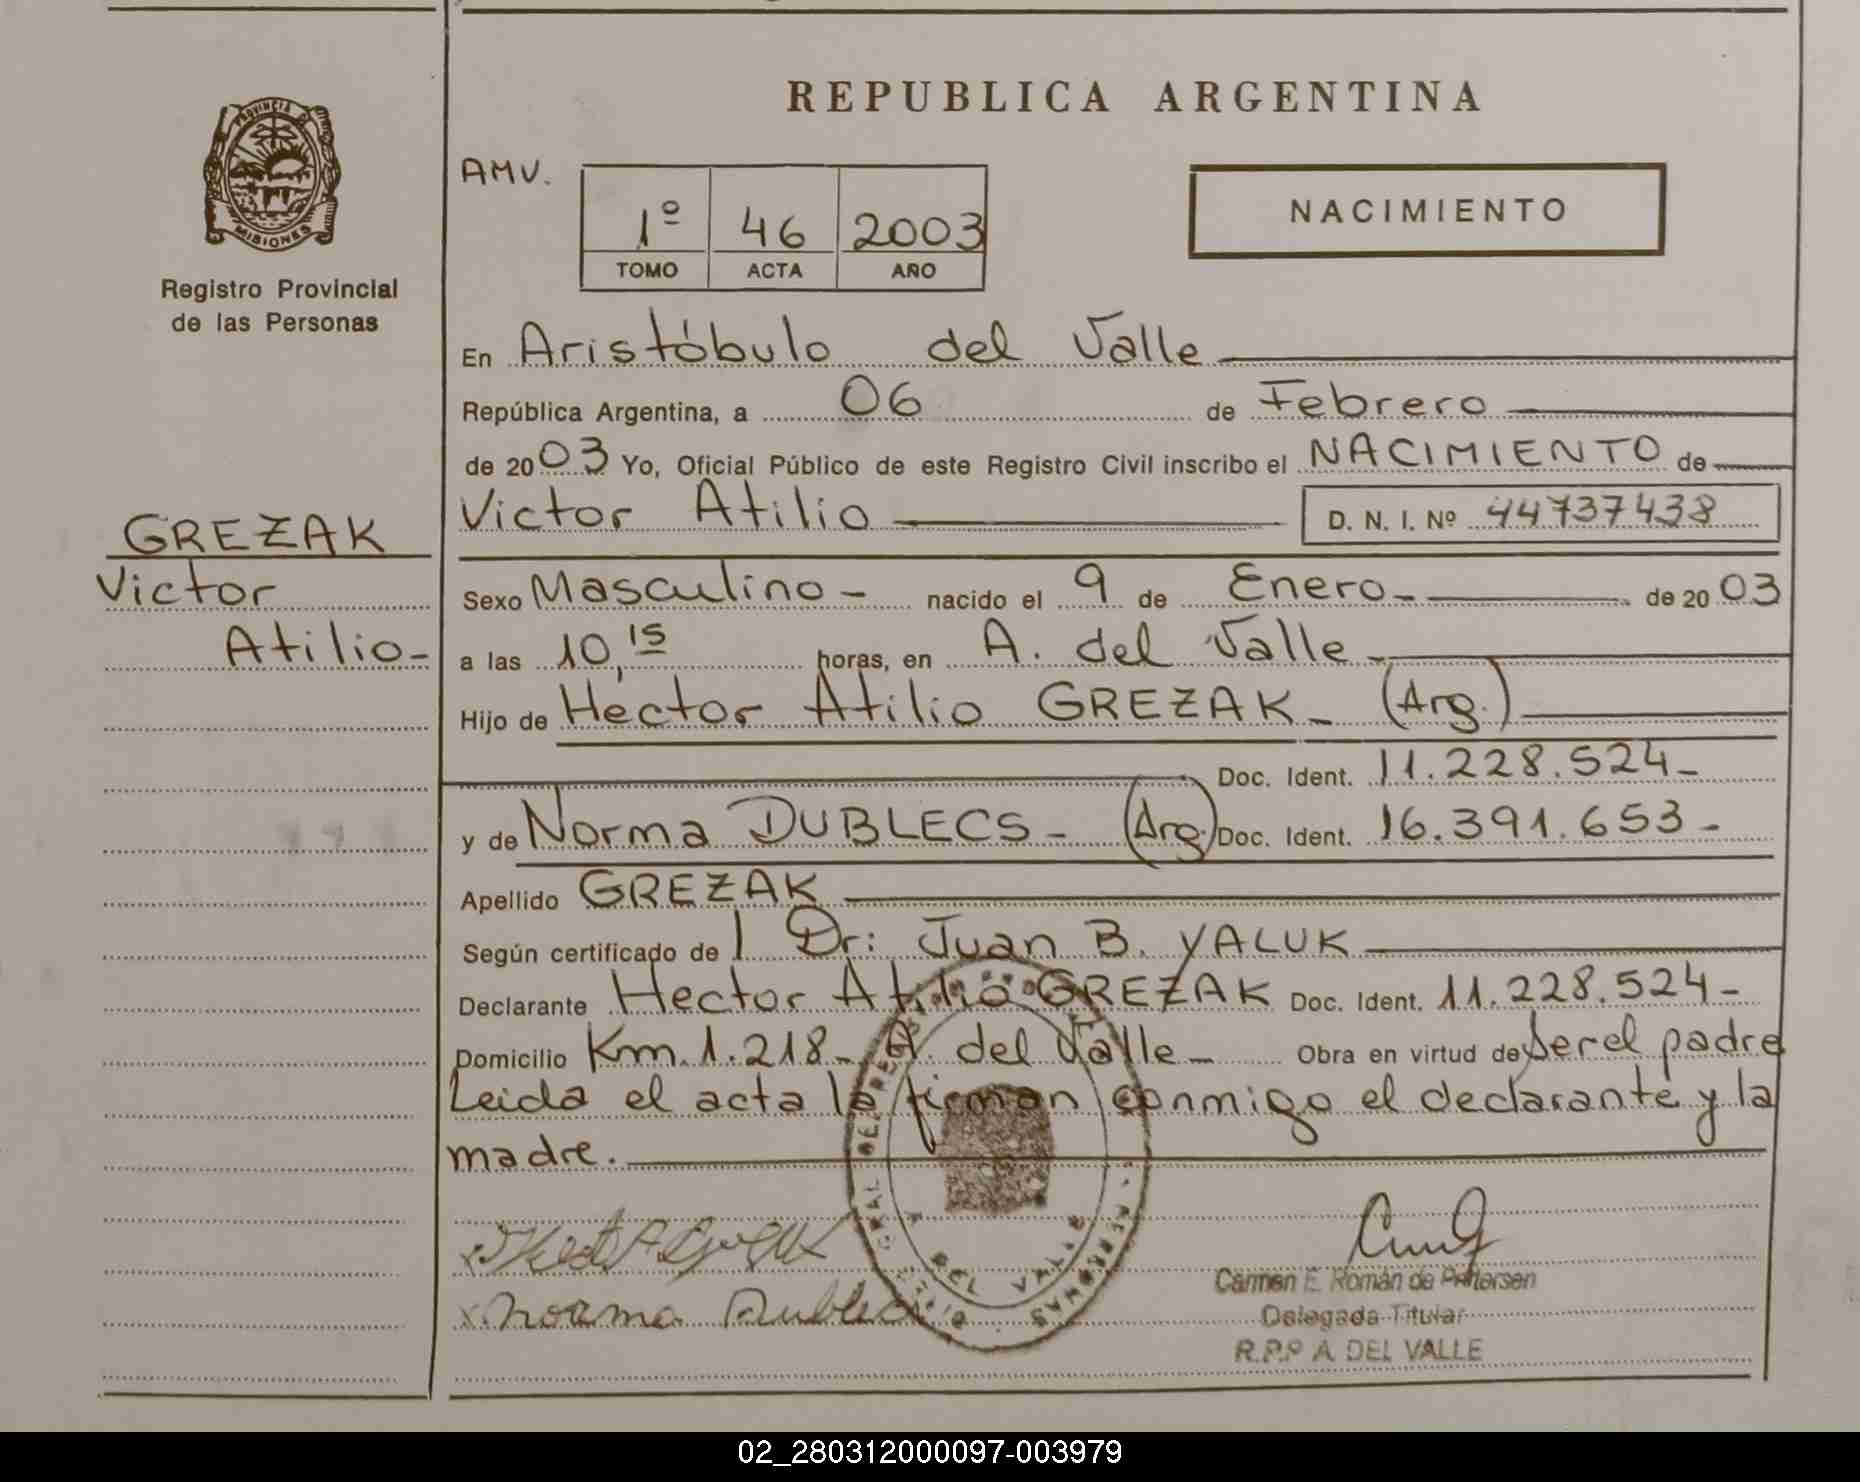 REPUBLICA ARGENTINA
PROVINCIA DE
MISIONES
Registro Provincial
de las Personas
AMV.
1º 46 2003
TOMO ACTA AÑO
NACIMIENTO
En Aristóbulo del Valle
República Argentina, a 06 de Febrero
de 2003 Yo, Oficial Público de este Registro Civil inscribo el NACIMIENTO de
Victor Atilio D. N. I. Nº 44737438
GREZAK
Victor
Atilio-
Sexo Masculino - nacido el 9 de Enero - de 2003
a las 10,15 horas, en A. del Valle -
Hijo de Héctor Atilio GREZAK - (Arg.)
Doc. Ident. 11.228.524-
y de Norma DUBLECS - (Arg.) Doc. Ident. 16.391.653-
Apellido GREZAK
Según certificado de Dr: Juan B. YALUK
Declarante Hector Atilio GREZAK Doc. Ident. 11.228.524-
Domicilio Km. 1.218- A. del Valle - Obra en virtud de Ser el padre
Leida el acta la firman conmigo el declarante y la
madre.
x Norma Dublecs
DEL VALLE
PERSONAS
Carmen E. Román de Petersen
Delegada Titular
R.P.P A. DEL VALLE
02_280312000097-003979